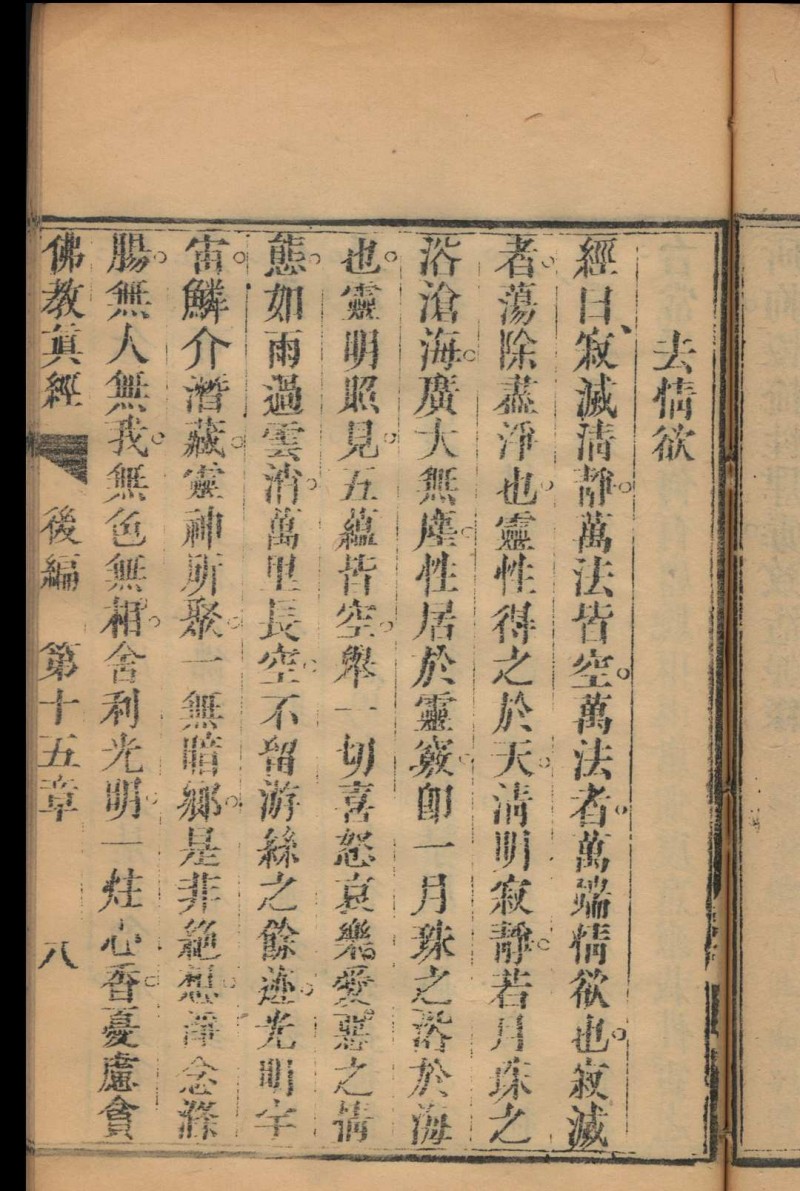 去情欲
經曰、寂滅清靜。萬法皆空。萬法者。萬端情欲也。寂滅
者。蕩除盡淨也。靈性得之於天。清明寂靜。若月珠之
浴滄海。廣大無塵。性居於靈竅。卽一月珠之浴於海
也。靈明照見。五蘊皆空。舉一切喜怒哀樂。愛惡之情
態。如雨過雲消。萬里長空。不留游絲之餘迹。光明宇
宙。鱗介潛藏。靈神所聚。一無暗鄉。是非絕想。淨念滌
腸。無人無我。無色無相。舍利光明。一炷心香。憂慮貪
佛教眞經 後編 第十五章 八